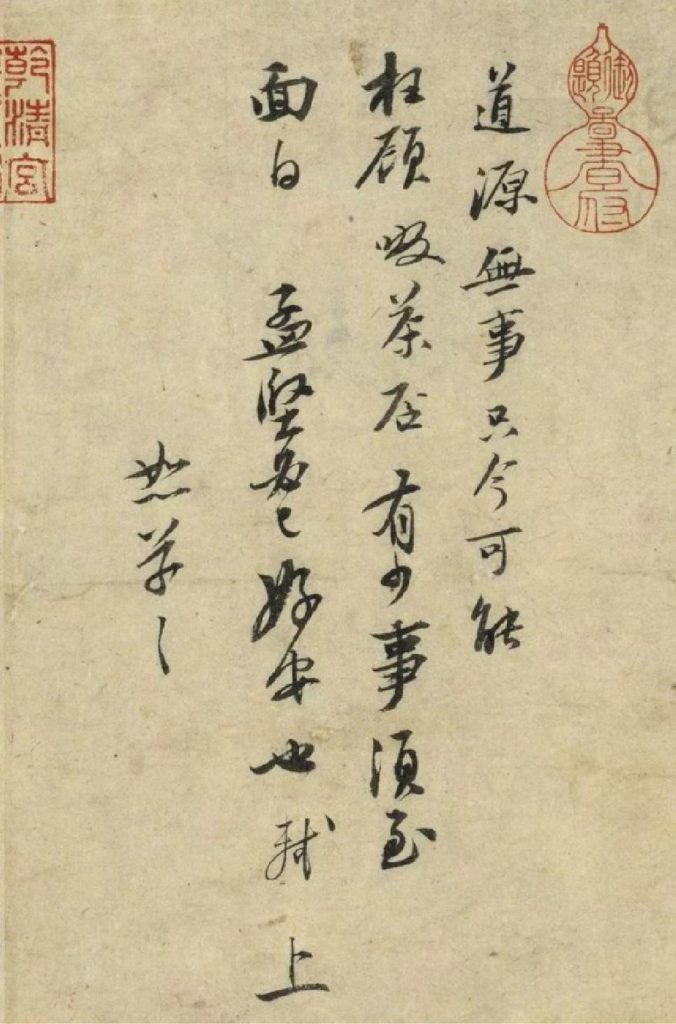 圖書府
道源無事只今可能
枉顧啜茶否有少事須至
面白孟堅必已好安也軾上
恕草〻
乾清宮